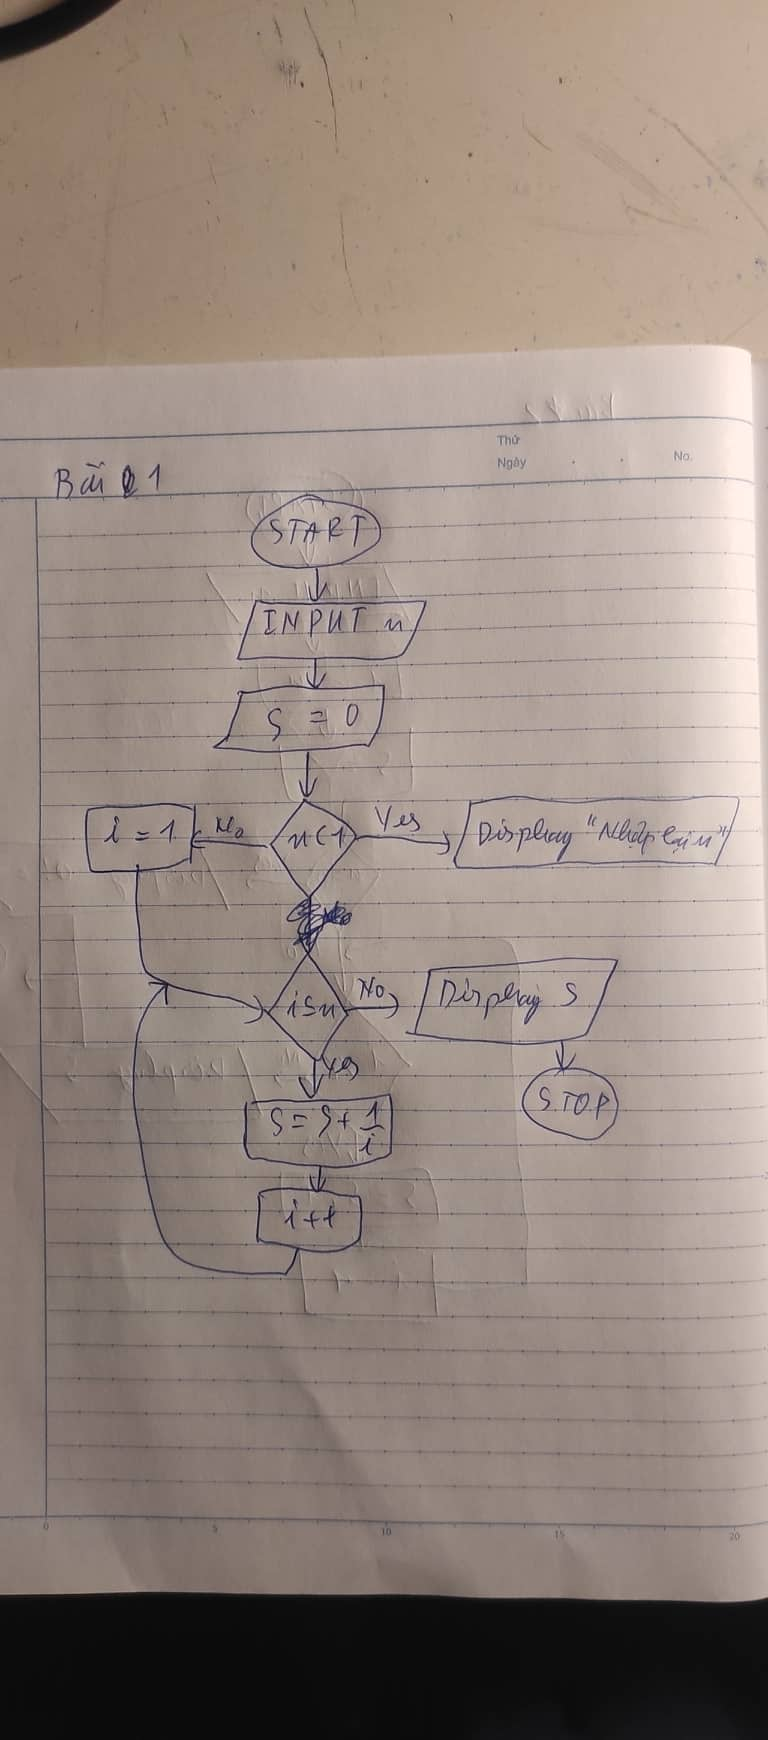 Thứ
Ngày
No.
Bài 1
START
INPUT n
S = 0
i = 1
No
n<1
Yes
Display "Nhập lại n"
i≤n
No
Display S
Yes
STOP
S = S + 1/i
i++
0 5 10 15 20